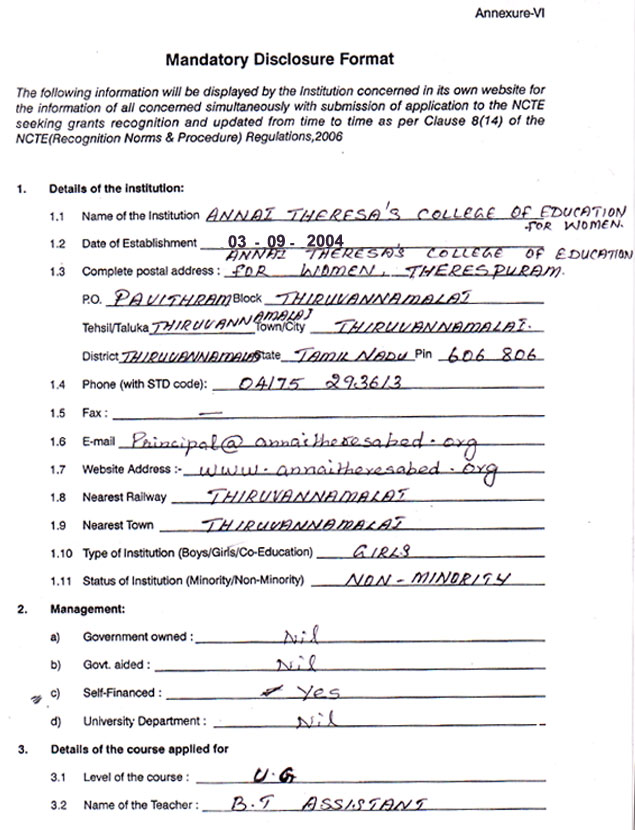 Annexure-VI
Mandatory Disclosure Format
The following information will be displayed by the Institution concerned in its own website for
the information of all concerned simultaneously with submission of application to the NCTE
seeking grants recognition and updated from time to time as per Clause 8(14) of the
NCTE(Recognition Norms & Procedure) Regulations,2006
1. Details of the institution:
1.1 Name of the Institution ANNAI THERESA'S COLLEGE OF EDUCATION
FOR WOMEN.
1.2 Date of Establishment 03 - 09 - 2004
ANNAI THERESA'S COLLEGE OF EDUCATION
1.3 Complete postal address : FOR WOMEN, THERESPURAM.
P.O. PAVITHRAM Block THIRUVANNAMALAI
Tehsil/Taluka THIRUVANNAMALAI Town/City THIRUVANNAMALAI.
District THIRUVANNAMALAI State TAMIL NADU Pin 606 806
1.4 Phone (with STD code): 04175 293613
1.5 Fax : —
1.6 E-mail Principal@annaitheresabed.org
1.7 Website Address :- www.annaitheresabed.org
1.8 Nearest Railway THIRUVANNAMALAI
1.9 Nearest Town THIRUVANNAMALAI
1.10 Type of Institution (Boys/Girls/Co-Education) GIRLS
1.11 Status of Institution (Minority/Non-Minority) NON - MINORITY
2. Management:
a) Government owned : Nil
b) Govt. aided : Nil
c) Self-Financed : Yes
d) University Department : Nil
3. Details of the course applied for
3.1 Level of the course : U.G
3.2 Name of the Teacher : B.T ASSISTANT